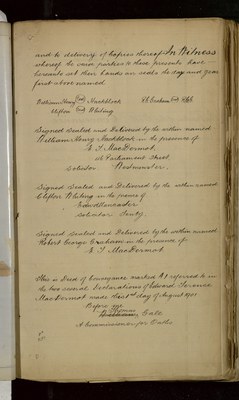 and to delivery of Copies thereof In Witness
whereof the said parties to these presents have
hereunto set their hands and seals the day and year
first above named
William Henry Hackblock R. G. Graham
Clifton Whiting
Signed Sealed and Delivered by the within named
William Henry Hackblock in the presence of
E. T. MacDermot
Parliament Street
Solicitor Westminster.
Signed Sealed and Delivered by the within named
Clifton Whiting in the presence of
Solicitor
Signed Sealed and Delivered by the within named
Robert George Graham in the presence of
E. T. MacDermot
This is Deed of Conveyance marked referred to in
the two several Declarations of Edward Terence
MacDermot made this day of August
Before me
Thomas
Gale
A Commissioner for Oaths